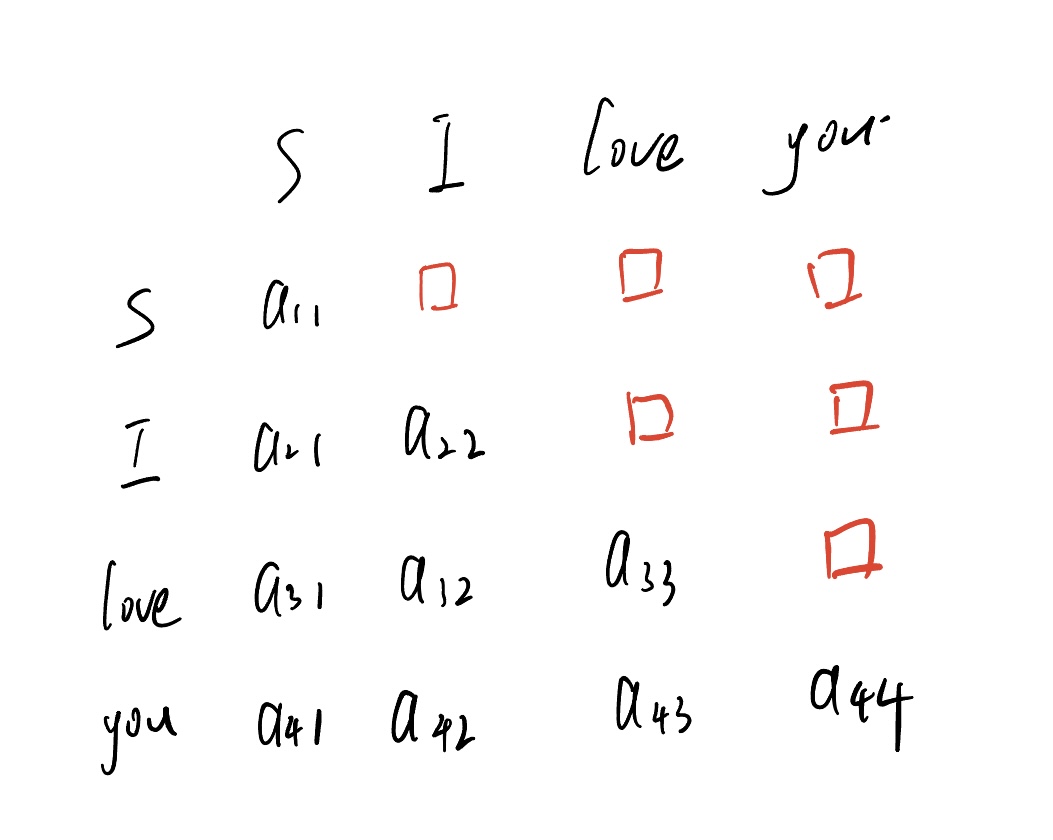 S I love you
S a11 □ □ □
I a21 a22 □ □
love a31 a32 a33 □
you a41 a42 a43 a44